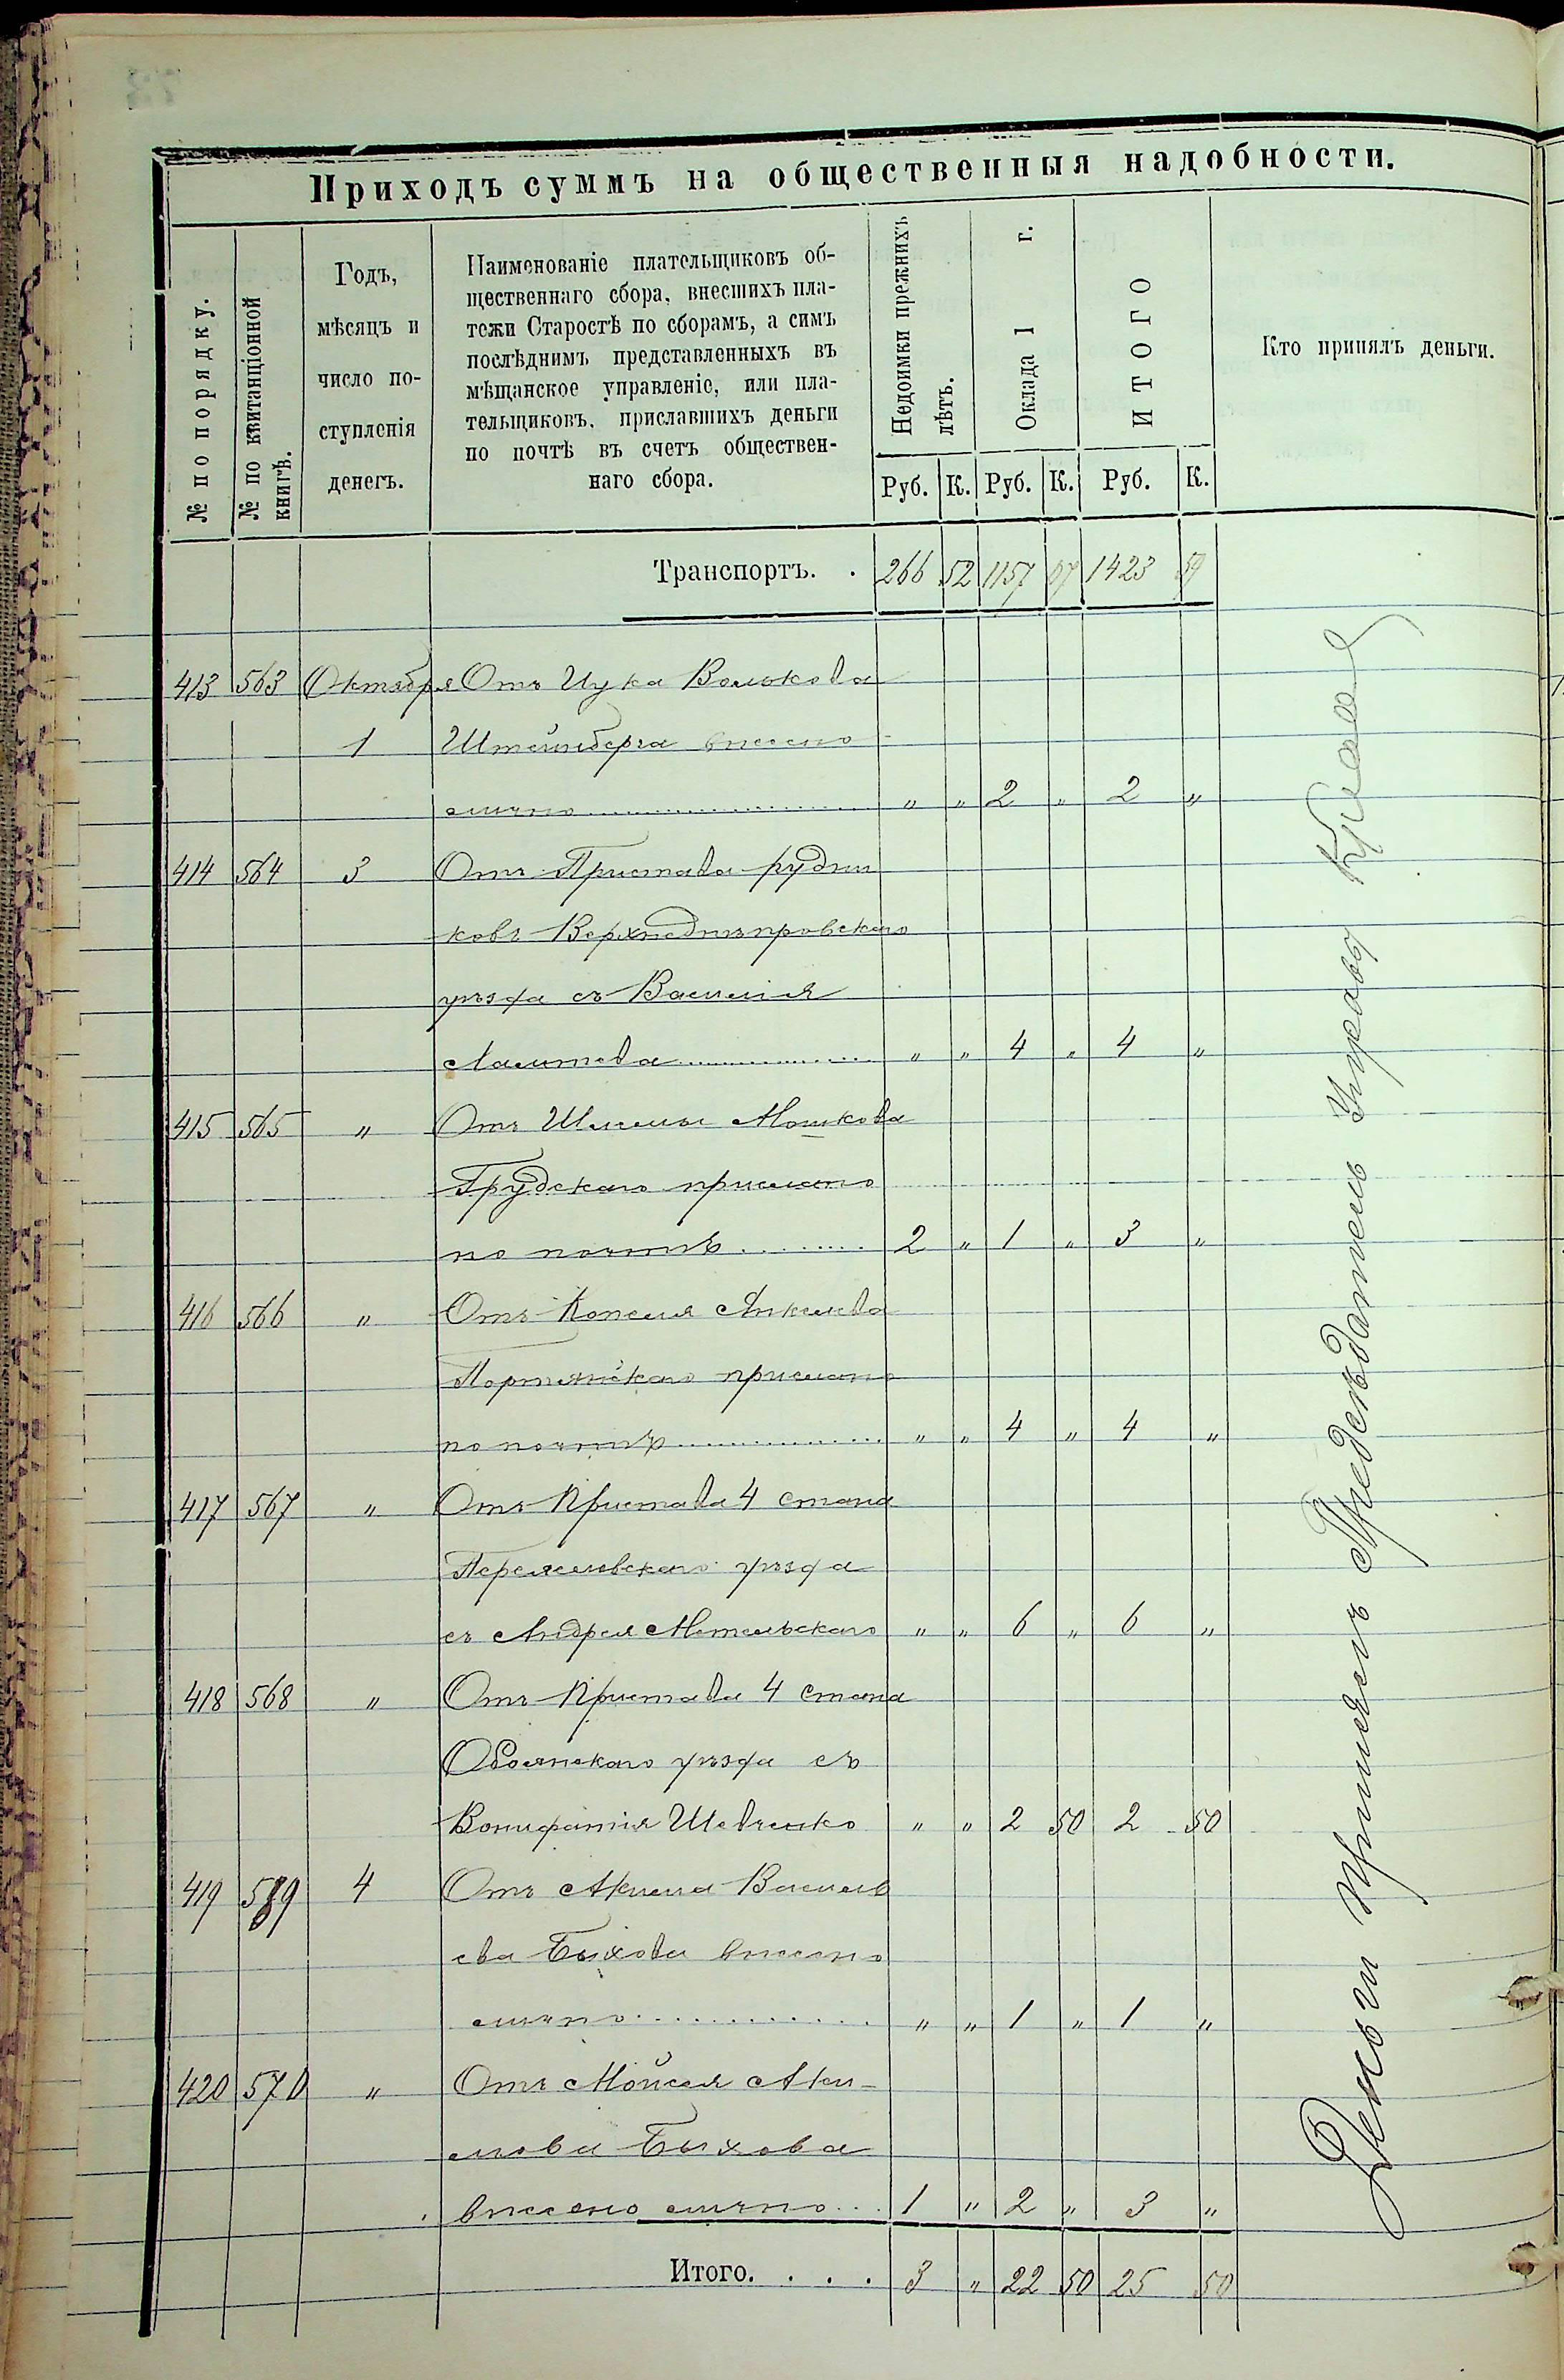 Приходъ суммъ на общественныя надобности.
№ по порядку.
№ по квитанціонной
книгѣ.
Годъ,
мѣсяцъ и
число по-
ступленія
денегъ.
Наименованіе плательщиковъ об-
щественнаго сбора, внесшихъ пла-
тежи Старостѣ по сборамъ, а симъ
послѣднимъ представленныхъ въ
мѣщанское управленіе, или пла-
тельщиковъ, приславшихъ деньги
по почтѣ въ счетъ обществен-
наго сбора.
Недоимки прежнихъ
лѣтъ.
Оклада 1 г.
ИТОГО
Кто принялъ деньги.
Руб. К. Руб. К. Руб. К.
Транспортъ. . 266 52 1157 07 1423 59
413 563 Октября Отъ Цука Волькова
1 Штейнберга внесено
лично " " 2 " 2 "
414 564 3 Отъ Пристава рудни
ковъ Верхнеднѣпровскаго
уѣзда съ Василія
" " 4 " 4 "
415 565 " Отъ Шлемы Мошкова
Грудскаго прислано
по почтѣ 2 " 1 " 3 "
416 566 " Отъ Копеля Анкелева
Портянскаго прислано
по почтѣ " " 4 " 4 "
417 567 " Отъ Пристава 4 стана
Переяславскаго уѣзда
съ Андрея Метельскаго " " 6 " 6 "
418 568 " Отъ Пристава 4 стана
Обоянскаго уѣзда съ
Вонифатія Шевченко " " 2 50 2 50
419 569 4 Отъ Акима Василь
ева Быхова внесено
лично " " 1 " 1 "
420 570 " Отъ Мойсея Аки-
мова Быхова
внесено лично 1 " 2 " 3 "
Итого. . . . 3 " 22 50 25 50
Деньги принялъ Предсѣдатель Управы